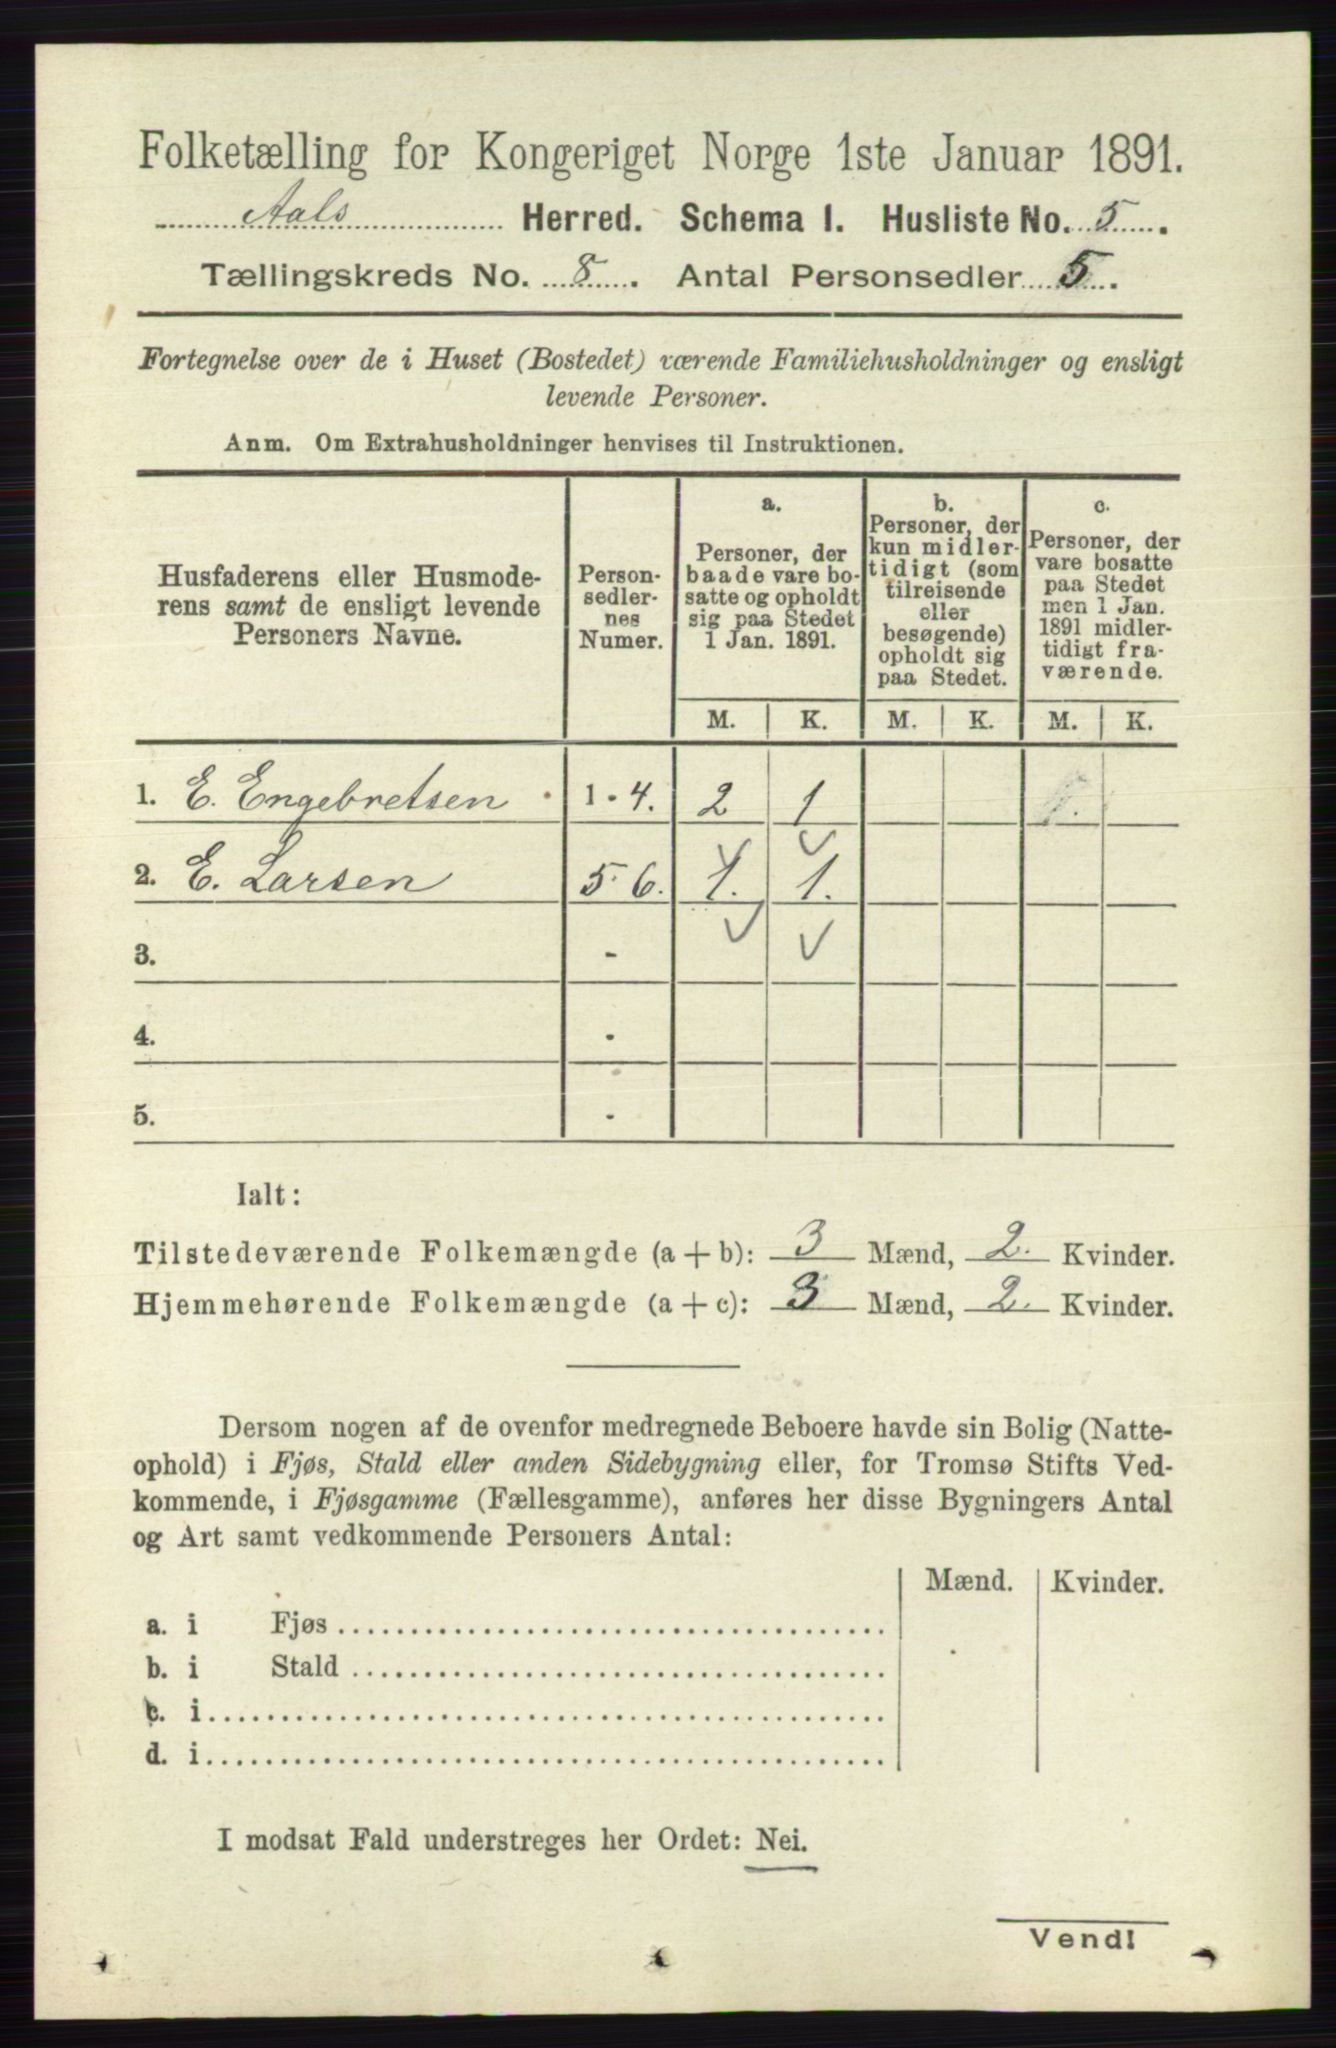 Folketælling for Kongeriget Norge 1ste Januar 1891.
Aals Herred. Schema 1. Husliste No. 5.
Tællingskreds No. 8. Antal Personsedler 5.
Fortegnelse over de i Huset (Bostedet) værende Familiehusholdninger og ensligt
levende Personer.
Anm. Om Extrahusholdninger henvises til Instruktionen.
Husfaderens eller Husmode-
rens samt de ensligt levende
Personers Navne.
Person-
sedler-
nes
Numer.
a.
Personer, der
baade vare bo-
satte og opholdt
sig paa Stedet
1 Jan. 1891.
b.
Personer, der
kun midler-
tidigt (som
tilreisende
eller
besøgende)
opholdt sig
paa Stedet.
c.
Personer, der
vare bosatte
paa Stedet
men 1 Jan.
1891 midler-
tidigt fra-
værende.
M. K. M. K. M. K.
1. E. Engebretsen 1-4. 2 1 1.
2. E. Larsen 5-6. 1. 1.
3. -
4. -
5. -
Ialt:
Tilstedeværende Folkemængde (a + b): 3 Mænd, 2. Kvinder.
Hjemmehørende Folkemængde (a + c): 3 Mænd, 2. Kvinder.
Dersom nogen af de ovenfor medregnede Beboere havde sin Bolig (Natte-
ophold) i Fjøs, Stald eller anden Sidebygning eller, for Tromsø Stifts Ved-
kommende, i Fjøsgamme (Fællesgamme), anføres her disse Bygningers Antal
og Art samt vedkommende Personers Antal:
Mænd. Kvinder.
a. i Fjøs
b. i Stald
c. i
d. i
I modsat Fald understreges her Ordet: Nei.
Vend!